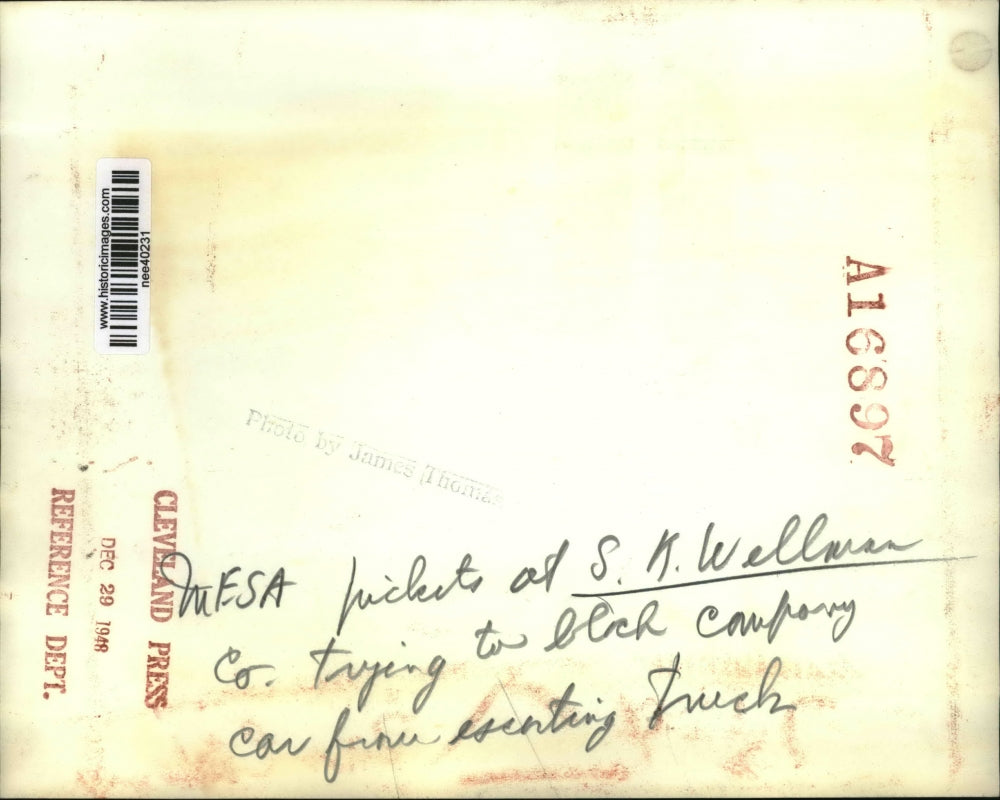 www.historicimages.com
nee40231
A16897
Photo by James Thomas
CLEVELAND PRESS
DEC 29 1948
REFERENCE DEPT.
MESA pickets at S. K. Wellman
Co. trying to block company
car from escorting truck